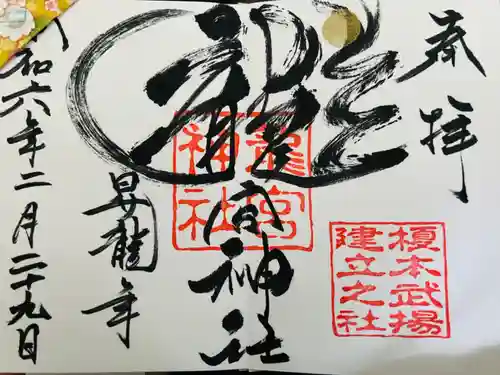 奉拝
龍宮神社
龍宮
神社
榎本武揚
建立之社
昇龍年
和六年二月二十九日